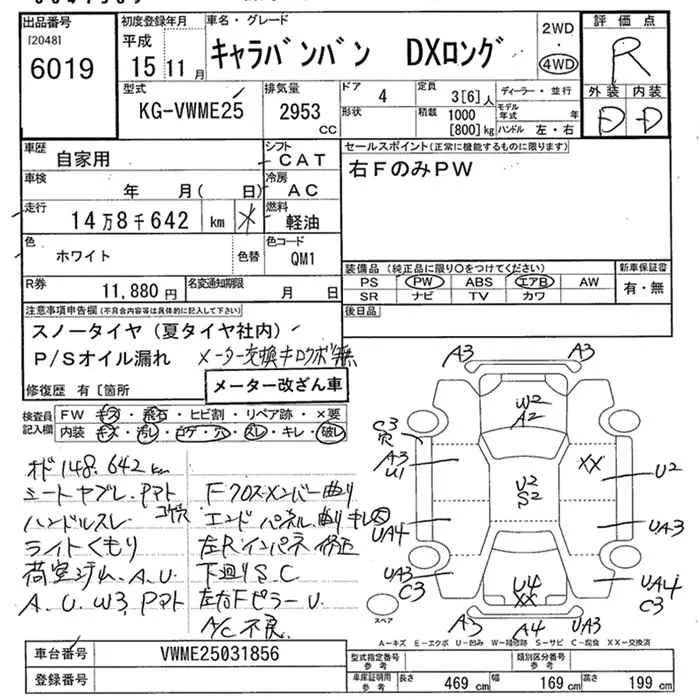 出品番号
[2048]
6019
初度登録年月
平成
15年11月
車名・グレード
キャラバンバン DXロング
2WD
4WD
評価点
R
外装 内装
D D
型式
KG-VWME25
排気量
2953 cc
ドア 4
形状
定員 3[6]人
積載 1000 [800]kg
ディーラー・並行
モデル年式 年
ハンドル 左・右
車歴 自家用
シフト CAT
車検 年 月( 日)
冷房 AC
走行 14万8千642 km
燃料 軽油
色 ホワイト
色替
色コード QM1
R券 11,880円
名変通知期限 月 日
セールスポイント(正常に機能するものに限ります)
右FのみPW
装備品(純正品に限り○をつけてください)
PS PW ABS エアB AW
SR ナビ TV カワ
新車保証書
有・無
後日品
注意事項申告欄(不具合内容等は具体的に記入して下さい)
スノータイヤ(夏タイヤ社内)
P/Sオイル漏れ メーター交換キロクボ無
修復歴 有[箇所
メーター改ざん車
検査員記入欄
FW キズ・飛石・ヒビ割・リペア跡・×要
内装 キズ・汚レ・コゲ・穴・スレ・キレ・破レ
オド148.642km
シートヤブレ、Pマト
コゲ穴
ハンドルスレ
ライトくもり
荷室ジム、A.U.
A.U.W3、Pマト
Fクロスメンバー曲り
エンドパネル曲りキレ大
左Rインパネ修正
下廻りS.C
左右FピラーU.
A/C不良
A3 A3
W2
A2
C3
穴
A3
U1
XX
U2
U2
S2
UA4
UA3
UA3
C3
U4
XX
UA4
C3
A3 A4 UA3
スペア
A-キズ E-エクボ U-凹み W-補修跡 S-サビ C-腐食 XX-交換済
車台番号 VWME25031856
登録番号
型式指定番号
参考
類別区分番号
参考
車庫証明用
参考
長さ 469 cm 幅 169 cm 高さ 199 cm